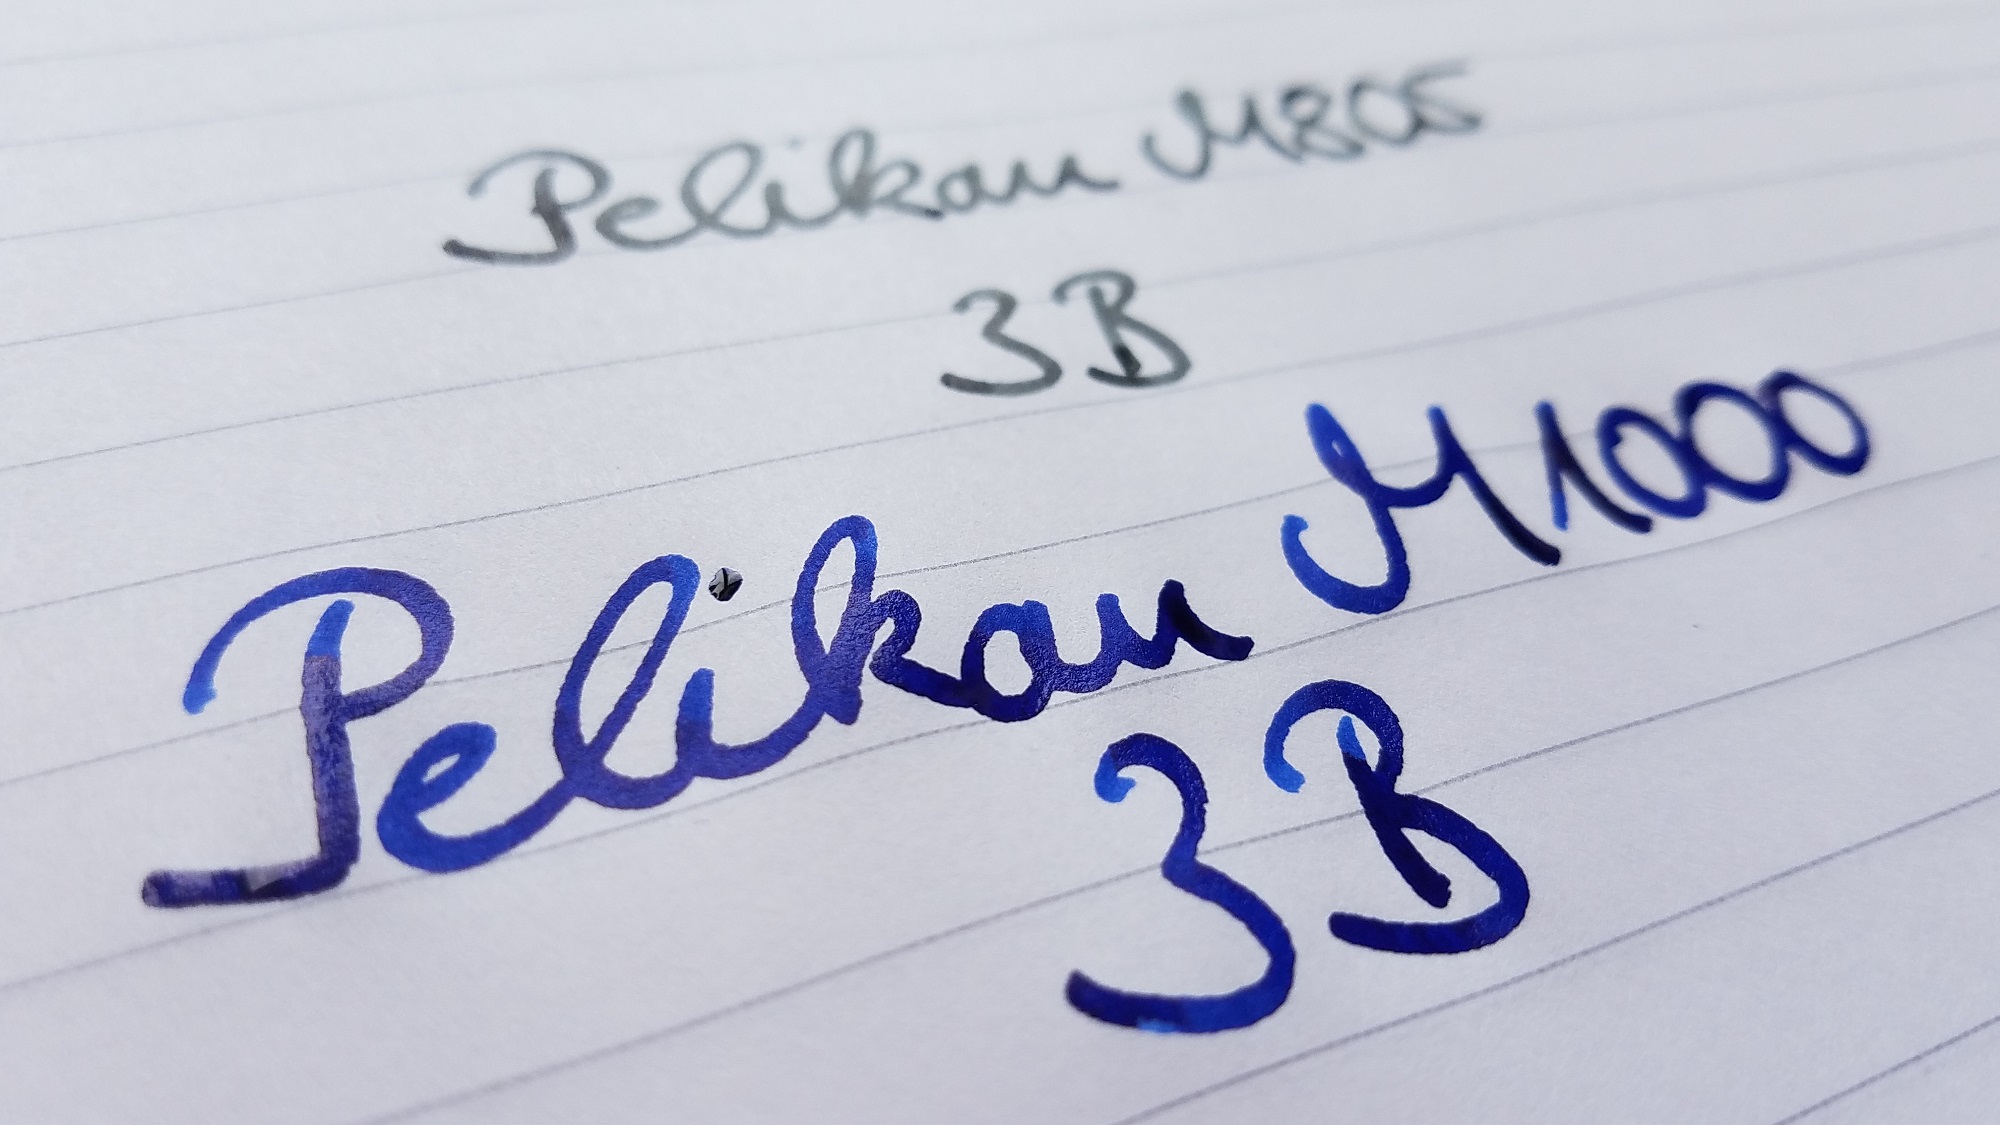 Pelikan M805
3B
Pelikan M1000
3B